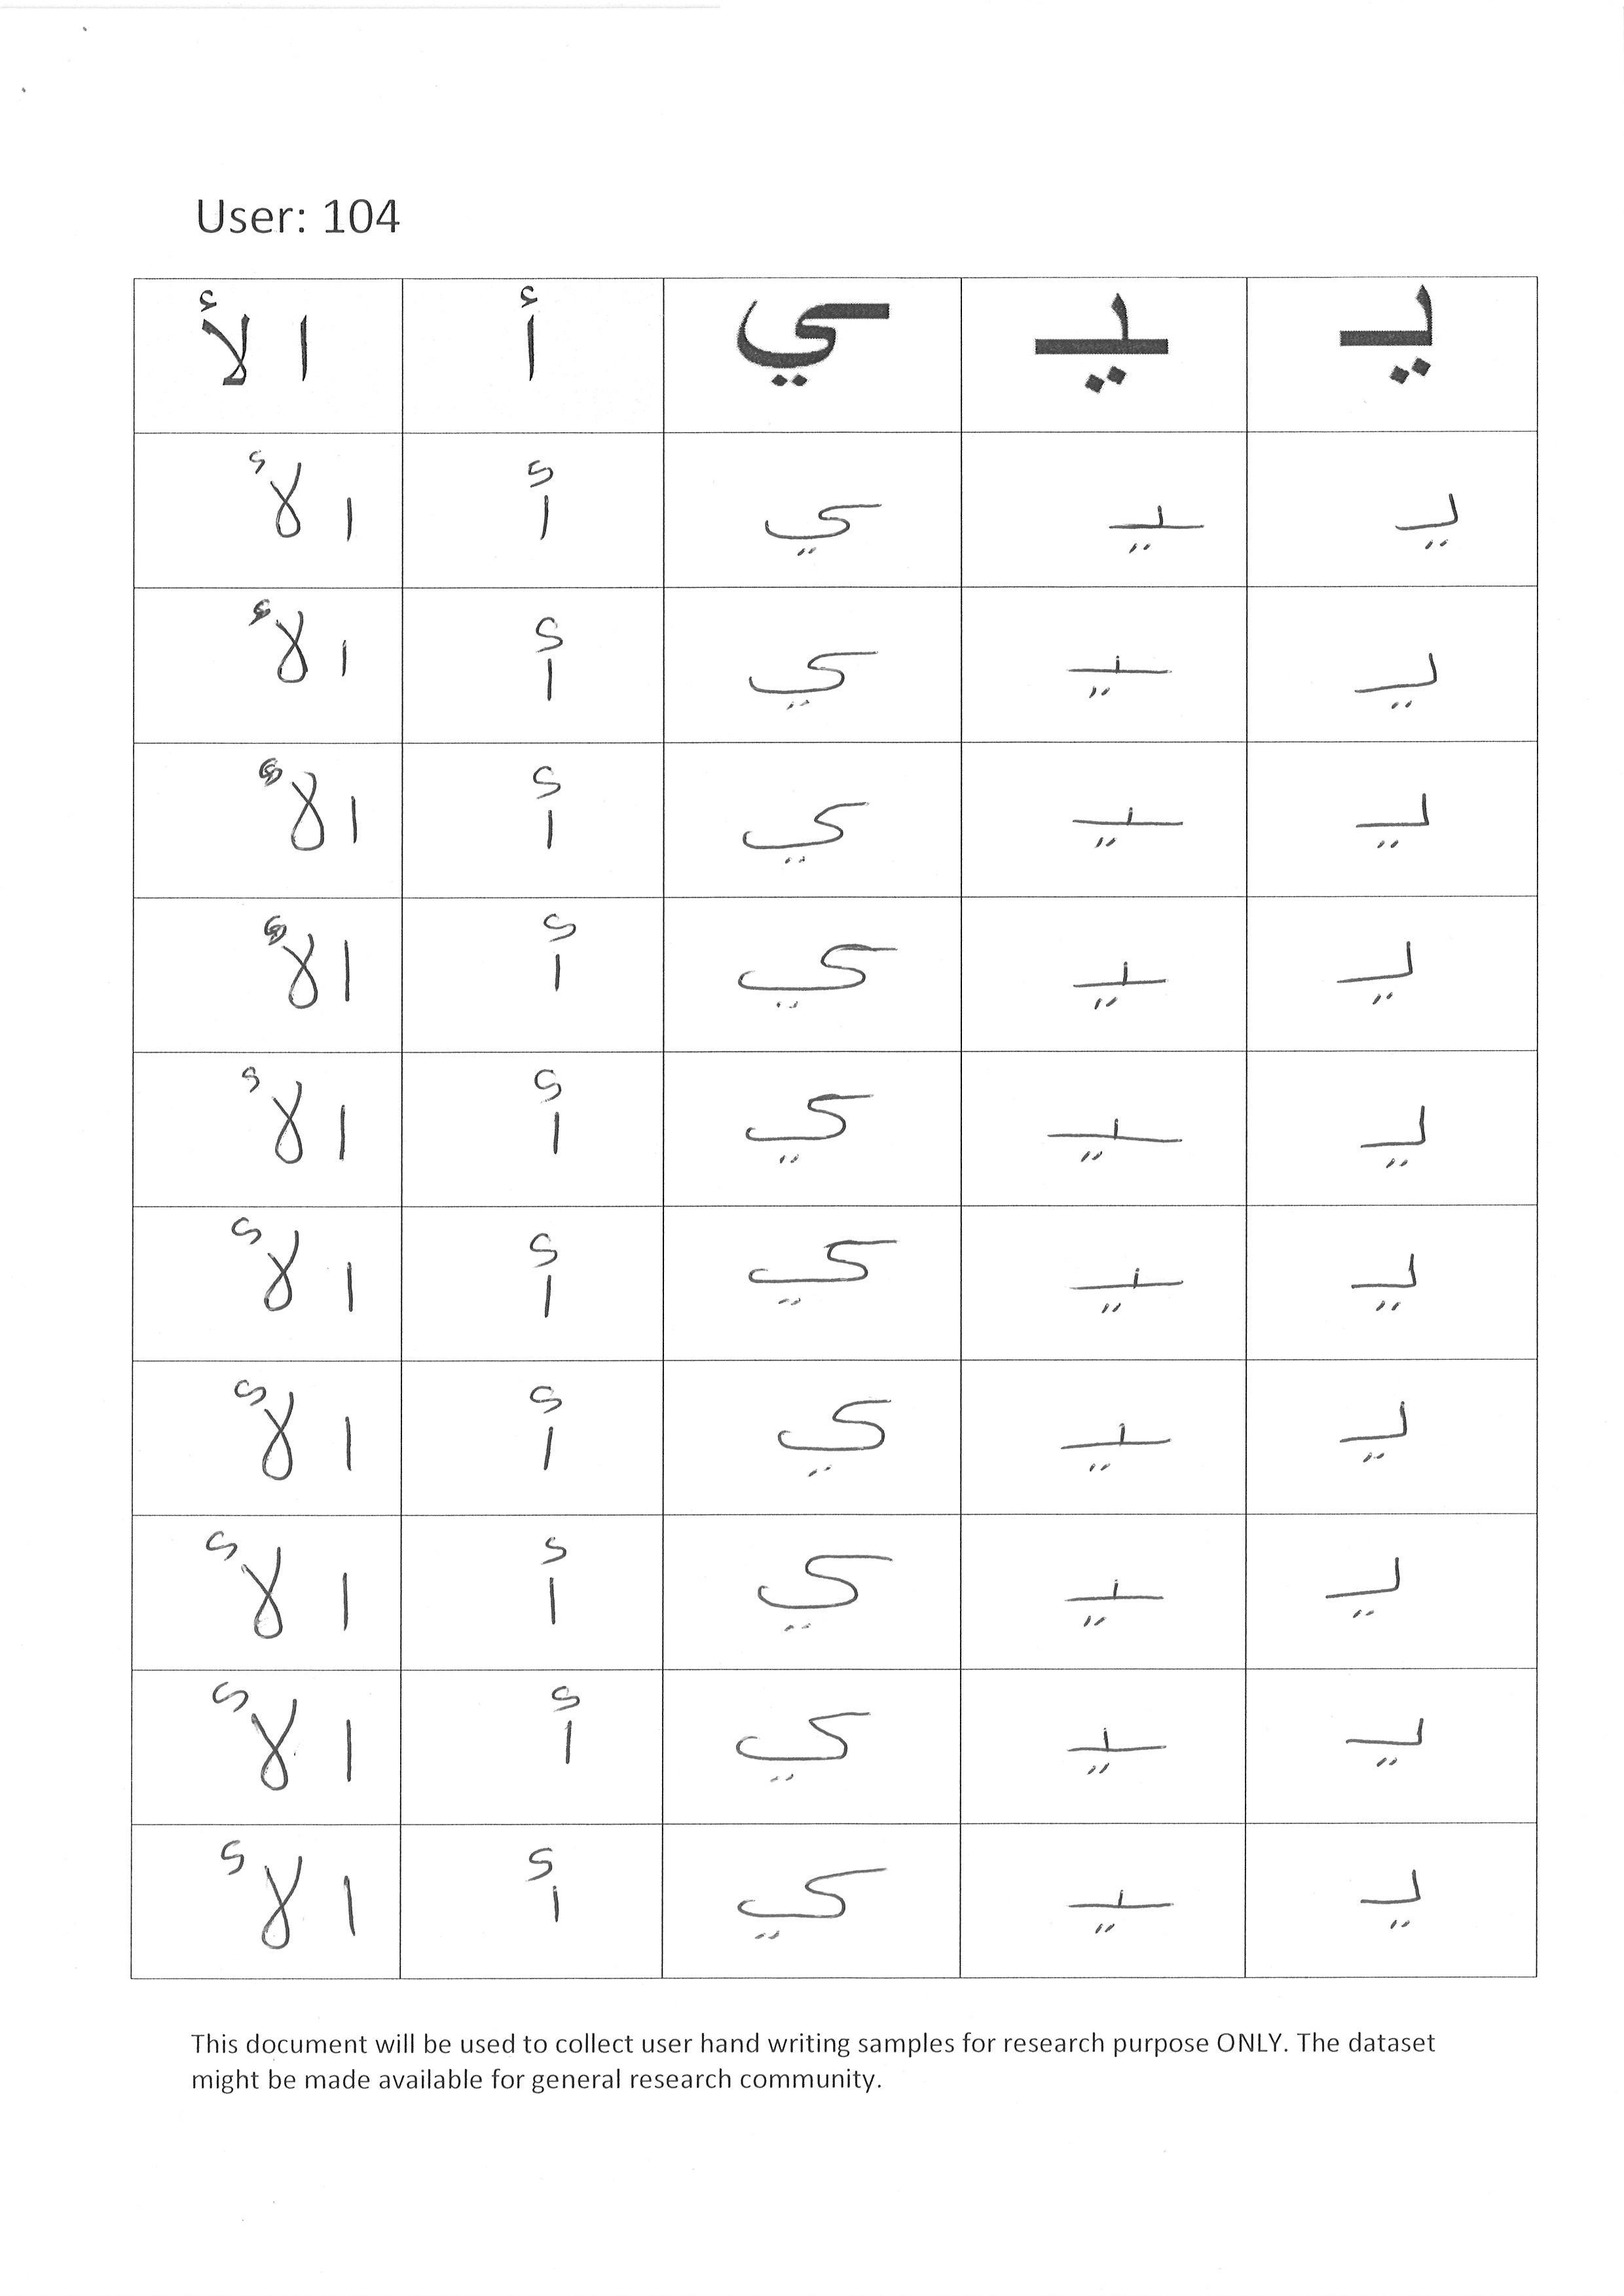 User: 104
يـ ـيـ ـي أ ا لأ
يـ ـيـ ـي أ ا لأ
يـ ـيـ ـي أ ا لأ
يـ ـيـ ـي أ ا لأ
يـ ـيـ ـي أ ا لأ
يـ ـيـ ـي أ ا لأ
يـ ـيـ ـي أ ا لأ
يـ ـيـ ـي أ ا لأ
يـ ـيـ ـي أ ا لأ
يـ ـيـ ـي أ ا لأ
يـ ـيـ ـي أ ا لأ
This document will be used to collect user hand writing samples for research purpose ONLY. The dataset
might be made available for general research community.